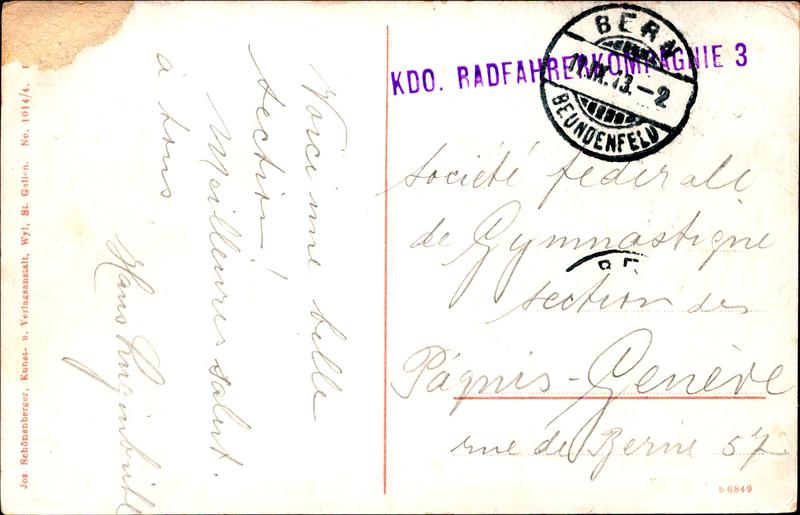 BERN
11.IX.13.-2
BEUNDENFELD
KDO. RADFAHRERKOMPAGNIE 3
Société fédérale
de Gymnastique
section des
Pâquis-Genève
rue de Berne 57
BE
Voici une belle
section!
Meilleures salut.
à tous
Hans Luginbühl
Jos. Schönenberger, Kunst- u. Verlagsanstalt, Wyl, St. Gallen. No. 1014/4.
b 6849